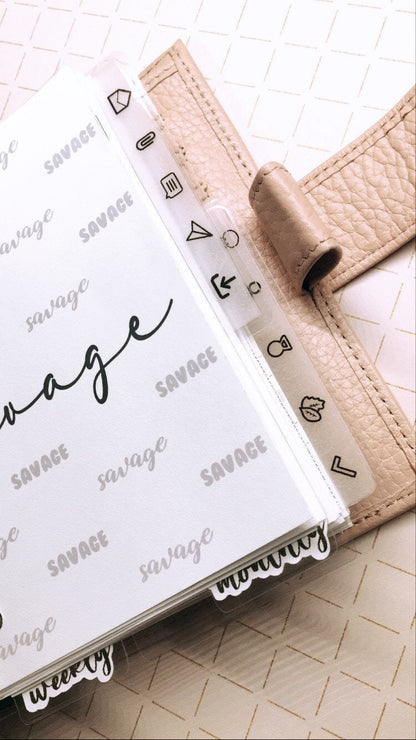 SAVAGE
savage
SAVAGE
savage
savage
SAVAGE
SAVAGE
savage
SAVAGE
SAVAGE
savage
savage
monthly
weekly